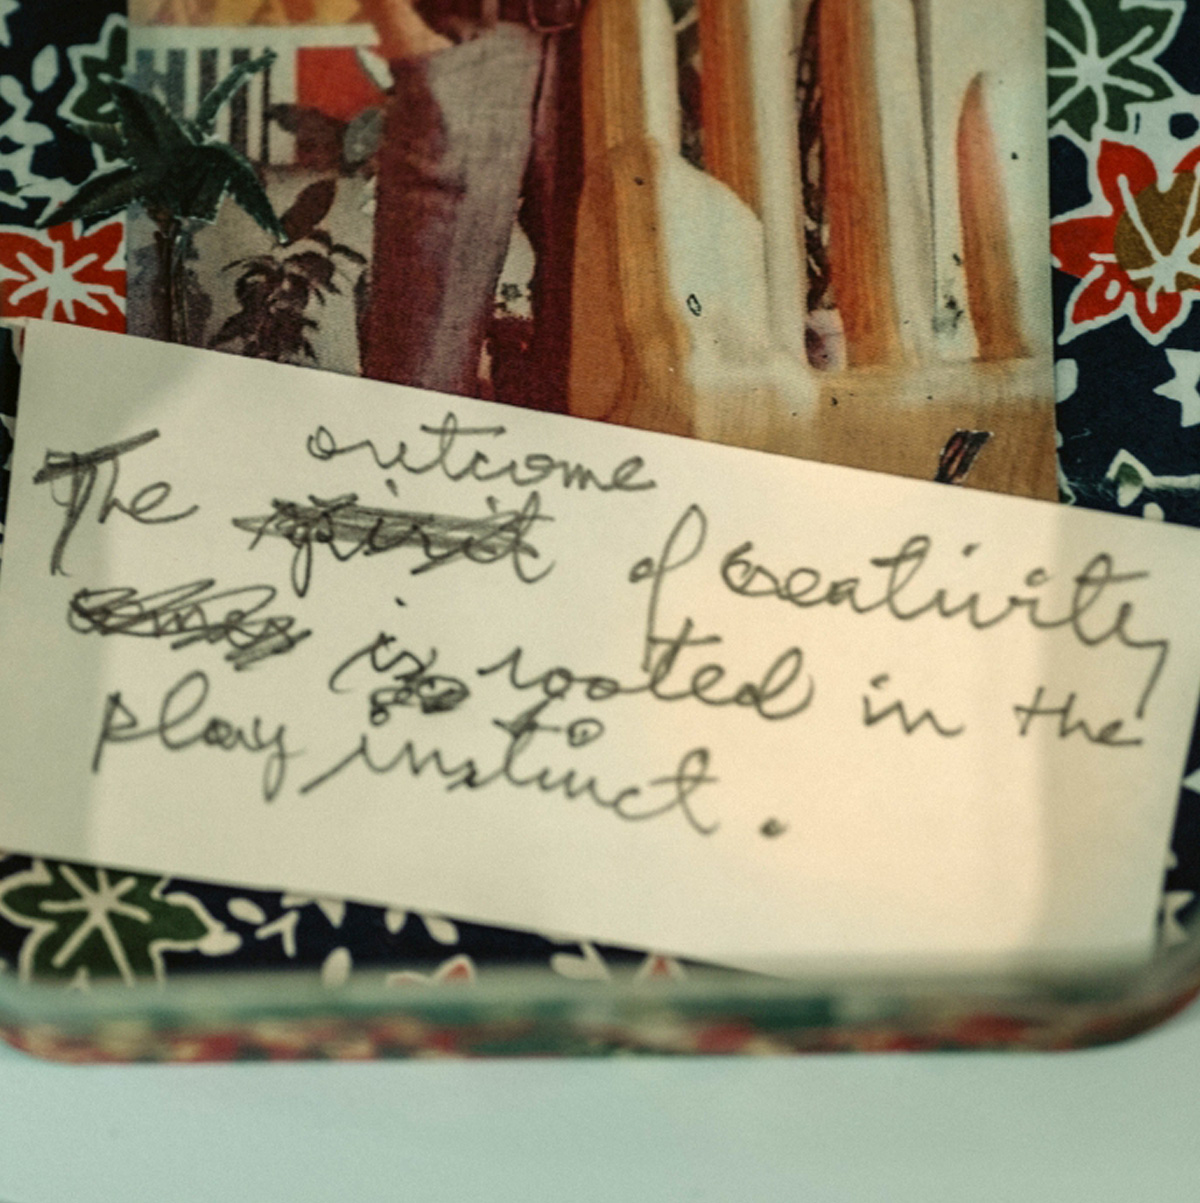 outcome
The spirit of creativity
is rooted in the
play instinct.